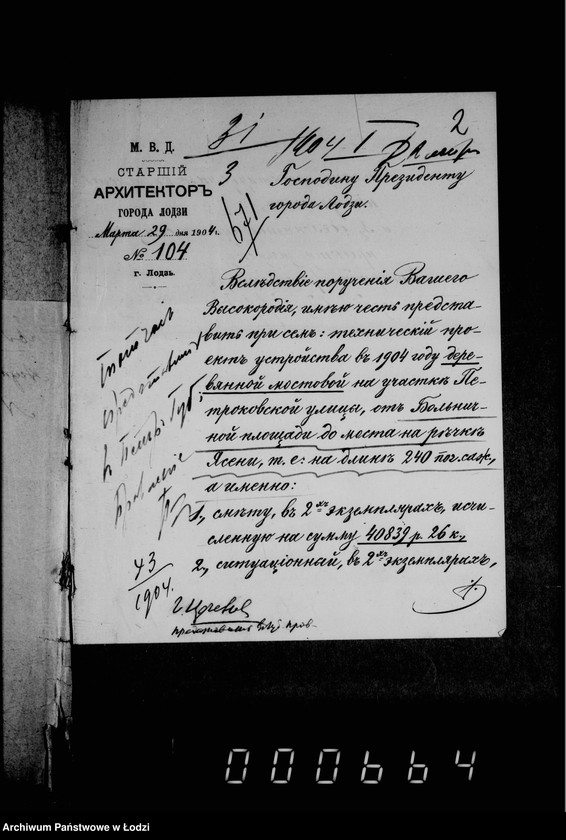 2
31
1904 I
3
671
М. В. Д.
СТАРШІЙ
АРХИТЕКТОРЪ
ГОРОДА ЛОДЗИ
Марта 29 дня 1904 г.
№ 104
г. Лодзь.
Господину Президенту
города Лодзи.
Вслѣдствіе порученія Вашего
Высокородія, имѣю честь предста-
вить при семъ: техническій про-
ектъ устройства въ 1904 году дере-
вянной мостовой на участкѣ Пе-
троковской улицы, отъ Больнич-
ной площади до моста на рѣчкѣ
Ясени, т. е: на длинѣ 240 пог. саж,
а именно:
1, смѣту, въ 2хъ экземплярахъ, исчи-
сленную на сумму 40839 р. 26 к,
2, ситуаціонный, въ 2хъ экземплярахъ,
къ Петр. Губ.
43
1904.
000664
Archiwum Państwowe w Łodzi